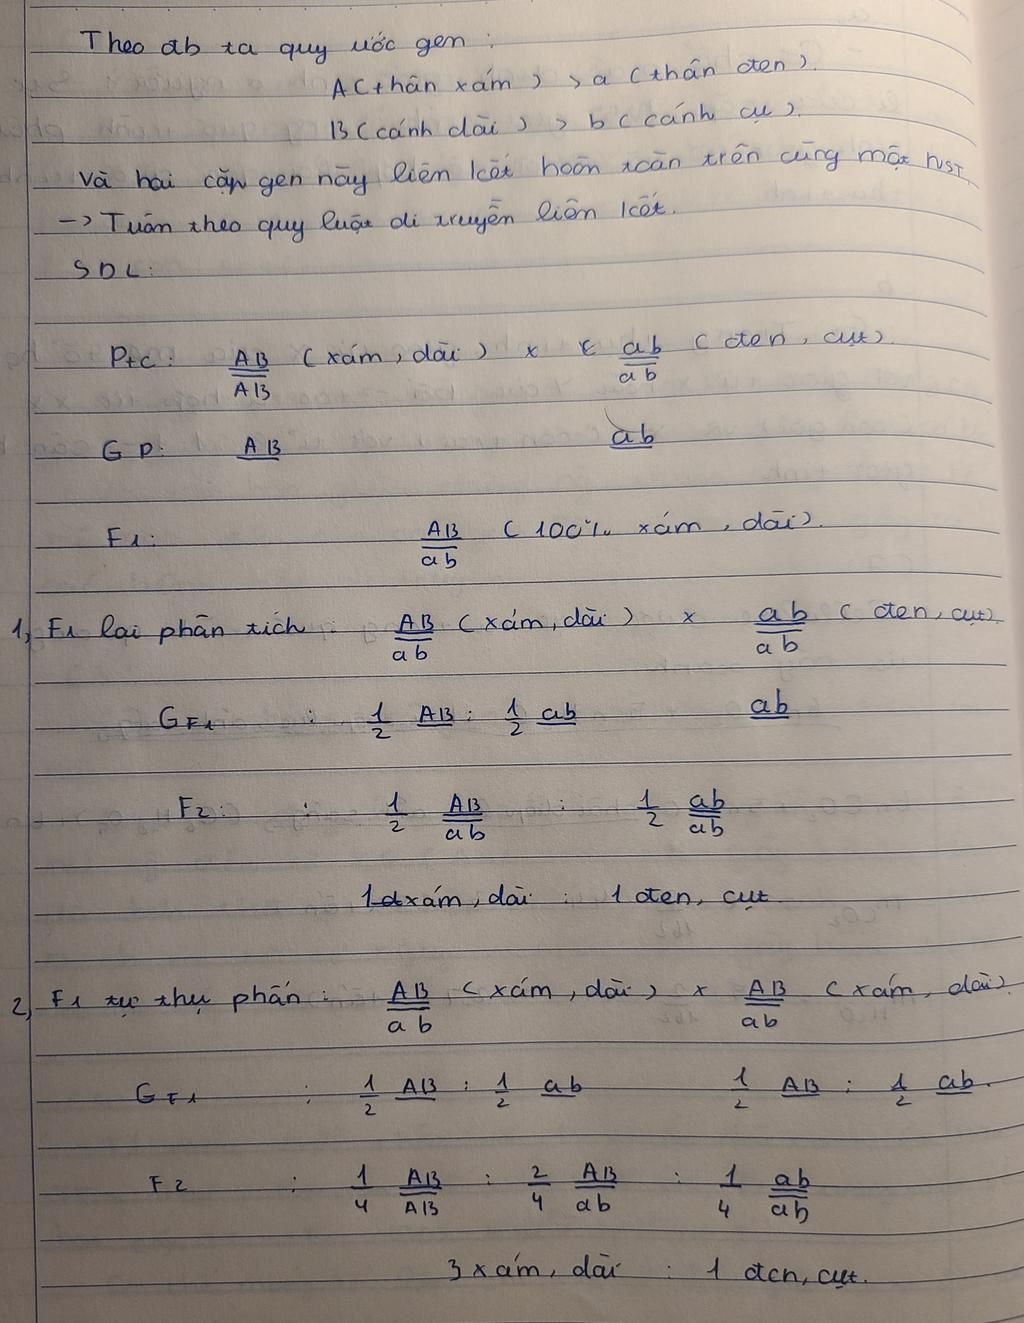 Theo đb ta quy ước gen :
A (thân xám) > a (thân đen).
B (cánh dài) > b (cánh cụt).
và hai cặp gen này liên kết hoàn toàn trên cùng một NST.
-> Tuân theo quy luật di truyền liên kết.
SDL:
Ptc: AB/AB (xám, dài) x ab/ab (đen, cụt).
GP: AB ab
F1: AB/ab (100% xám, dài).
1, F1 lai phân tích : AB/ab (xám, dài) x ab/ab (đen, cụt).
GF1 : 1/2 AB : 1/2 ab ab
F2: : 1/2 AB/ab : 1/2 ab/ab
1 xám, dài : 1 đen, cụt.
2, F1 tự thụ phấn : AB/ab (xám, dài) x AB/ab (xám, dài).
GF1 : 1/2 AB : 1/2 ab 1/2 AB : 1/2 ab.
F2 : 1/4 AB/AB : 2/4 AB/ab : 1/4 ab/ab
3 xám, dài : 1 đen, cụt.